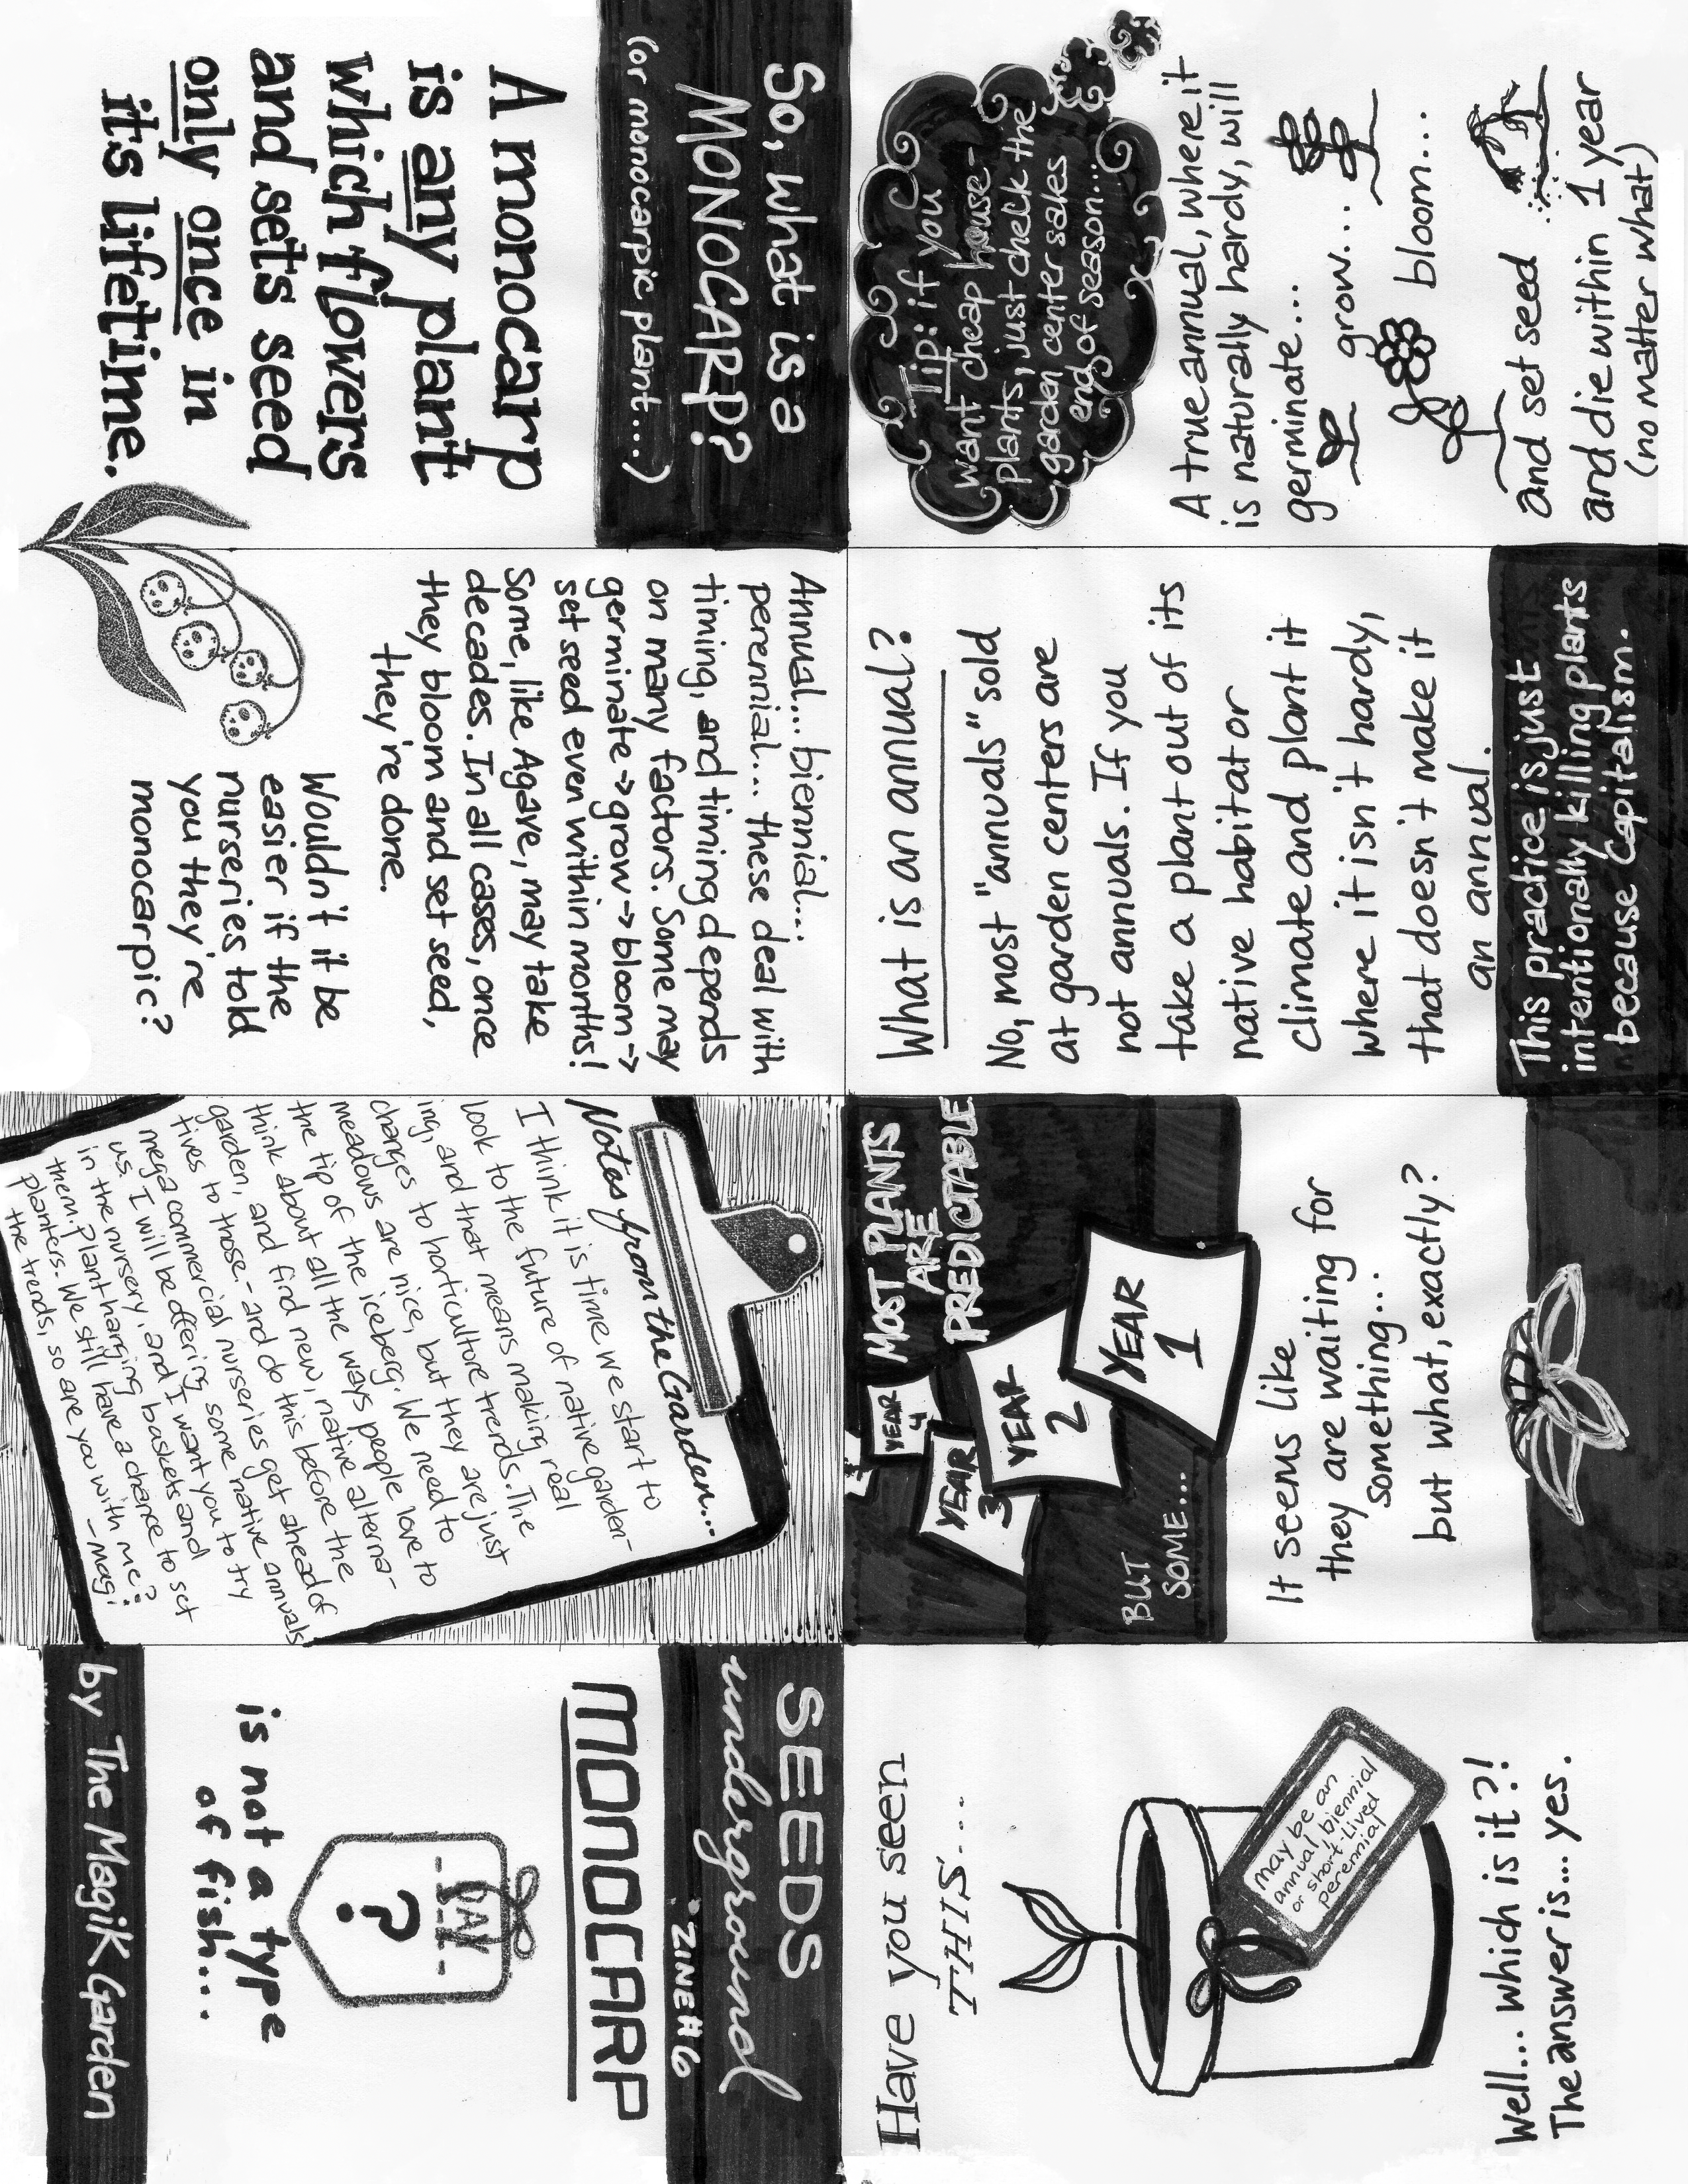 SEEDS
underground
ZINE #6
MONOCARP
DAY
?
is not a type
of fish...
by The Magik Garden
Have you seen
THIS....
may be an
annual, biennial
or short-Lived
perennial
Well... which is it?!
The answer is... yes.
MOST PLANTS
ARE
PREDICTABLE
YEAR
4
YEAR
3
YEAR
2
YEAR
1
BUT
SOME...
It seems like
they are waiting for
something...
but what, exactly?
What is an annual?
No, most "annuals" sold
at garden centers are
not annuals. If you
take a plant out of its
native habitat or
climate and plant it
where it isn't hardy,
that doesn't make it
an annual.
This practice is just
intentionally killing plants
because Capitalism.
Tip: if you
want cheap house-
plants, just check the
garden center sales
end of season...
A true annual, where it
is naturally hardy, will
germinate...
grow...
bloom...
and set seed
and die within 1 year
(no matter what)
So, what is a
MONOCARP?
(or monocarpic plant....)
A monocarp
is any plant
which flowers
and sets seed
only once in
it's lifetime.
Annual... biennial...
perennial... these deal with
timing, and timing depends
on many factors. Some may
germinate → grow → bloom →
set seed even within months!
Some, like Agave, may take
decades. In all cases, once
they bloom and set seed,
they're done.
Wouldn't it be
easier if the
nurseries told
you they're
monocarpic?
Notes from the Garden...
I think it is time we start to
look to the future of native garden-
ing, and that means making real
changes to horticulture trends. The
meadows are nice, but they are just
the tip of the iceberg. We need to
think about all the ways people love to
garden, and find new, native alterna-
tives to those - and do this before the
mega commercial nurseries get ahead of
us. I will be offering some native annuals
in the nursery, and I want you to try
them. Plant hanging baskets and
planters. We still have a chance to set
the trends, so are you with me?
-Magi